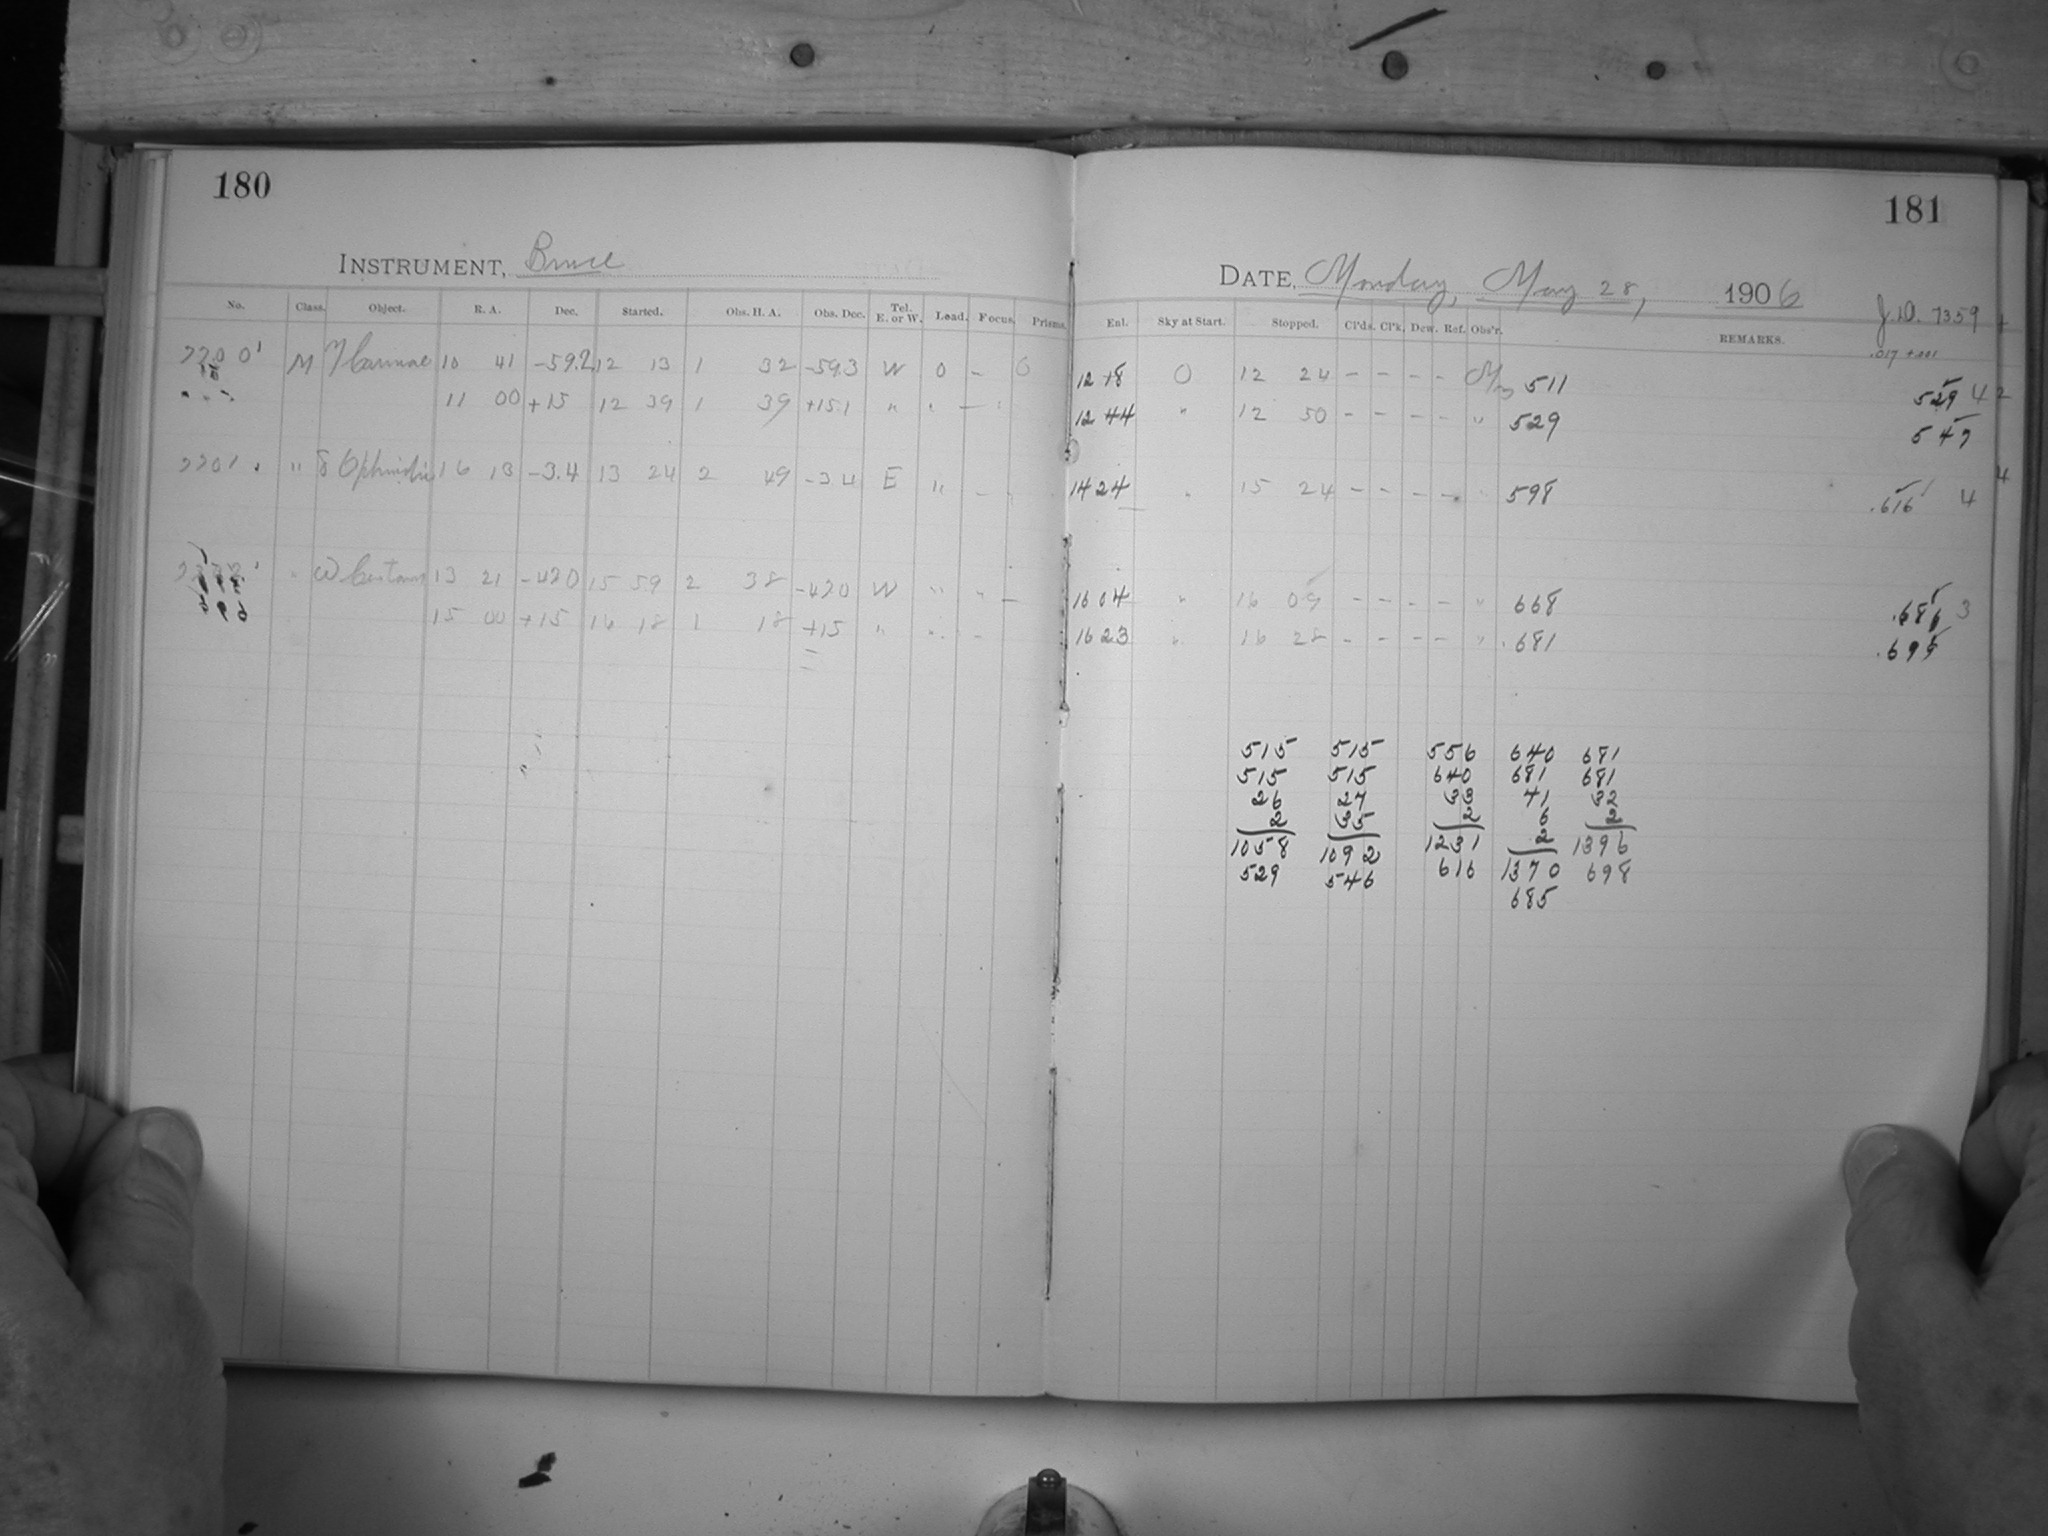 180
INSTRUMENT, Bruce
No. Class. Object. R. A. Dec. Started. Obs. H. A. Obs. Dec. Tel. E. or W. Load. Focus. Prisms.
7700 M η Carinae 10 41 -59.2 12 13 1 32 -59.3 W 0 - 0
11 00 +15 12 39 1 39 +15.1 " " -
7701 " δ Ophiuchi 16 13 -3.4 13 24 2 49 -3.4 E " -
" ω Centauri 13 21 -47.0 15 59 2 38 -47.0 W " " -
15 00 +15 16 18 1 18 +15 " " -
181
DATE, Monday, May 28, 1906
J.D. 7359 +
Enl. Sky at Start. Stopped. Cl'ds. Cl'k, Dew. Ref. Obs'r. REMARKS.
.017 +.001
12 18 0 12 24 - - - - 511 529 4 2
12 44 " 12 50 - - - - " 529 547
14 24 " 15 24 - - - - 598 .616 4 4
16 04 " 16 09 - - - - " 668 .686 3
16 23 " 16 28 - - - - " .681 .695
515 515 556 640 681
515 515 640 681 681
26 27 33 41 32
2 35 2 6 2
1058 1092 1231 2 1396
529 546 616 1370 698
685